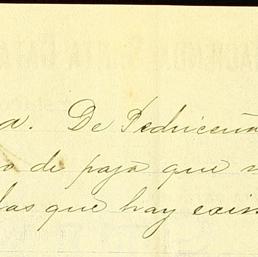 a. De Pedriceña
o de paja que
las que hay exis